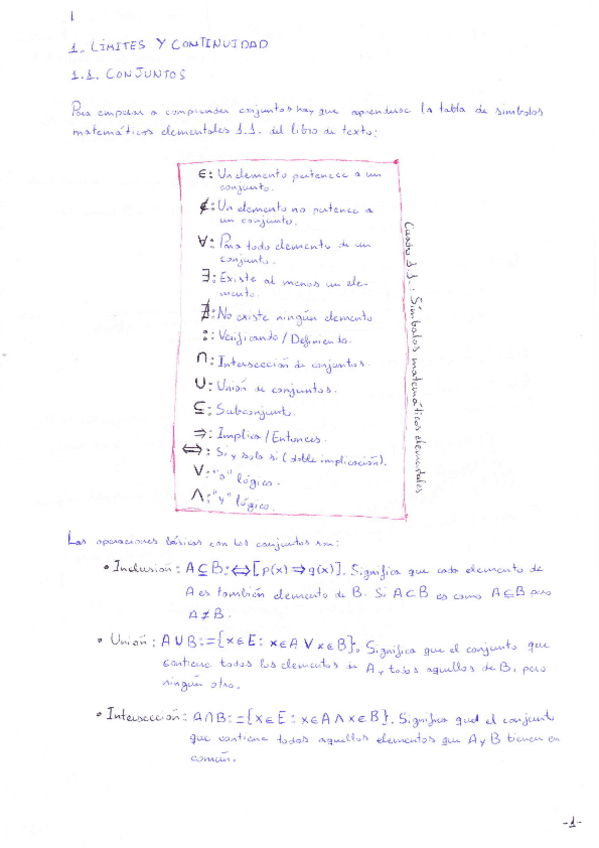 1
1. LÍMITES Y CONTINUIDAD
1.1. CONJUNTOS
Para empezar a comprender conjuntos hay que aprenderse la tabla de símbolos
matemáticos elementales 1.1. del libro de texto:
∈: Un elemento pertenece a un
conjunto.
∉: Un elemento no pertenece a
un conjunto.
∀: Para todo elemento de un
conjunto.
∃: Existe al menos un ele-
mento.
∄: No existe ningún elemento
:: Verificando / Definiendo.
∩: Intersección de conjuntos.
∪: Unión de conjuntos.
⊆: Subconjunto.
⇒: Implica / Entonces.
⇔: Si y solo si (doble implicación).
∨: "o" lógico.
∧: "y" lógico.
Cuadro 1.1.: Símbolos matemáticos elementales
Las operaciones básicas con los conjuntos son:
• Inclusión: A⊆B:⇔[p(x)⇒q(x)]. Significa que cada elemento de
A es también elemento de B. Si A⊂B es como A⊆B pero
A≠B.
• Unión: A∪B:={x∈E: x∈A ∨ x∈B}. Significa que el conjunto que
contiene todos los elementos de A y todos aquellos de B, pero
ningún otro.
• Intersección: A∩B:={x∈E: x∈A ∧ x∈B}. Significa que el conjunto
que contiene todos aquellos elementos que A y B tienen en
común.
-1-